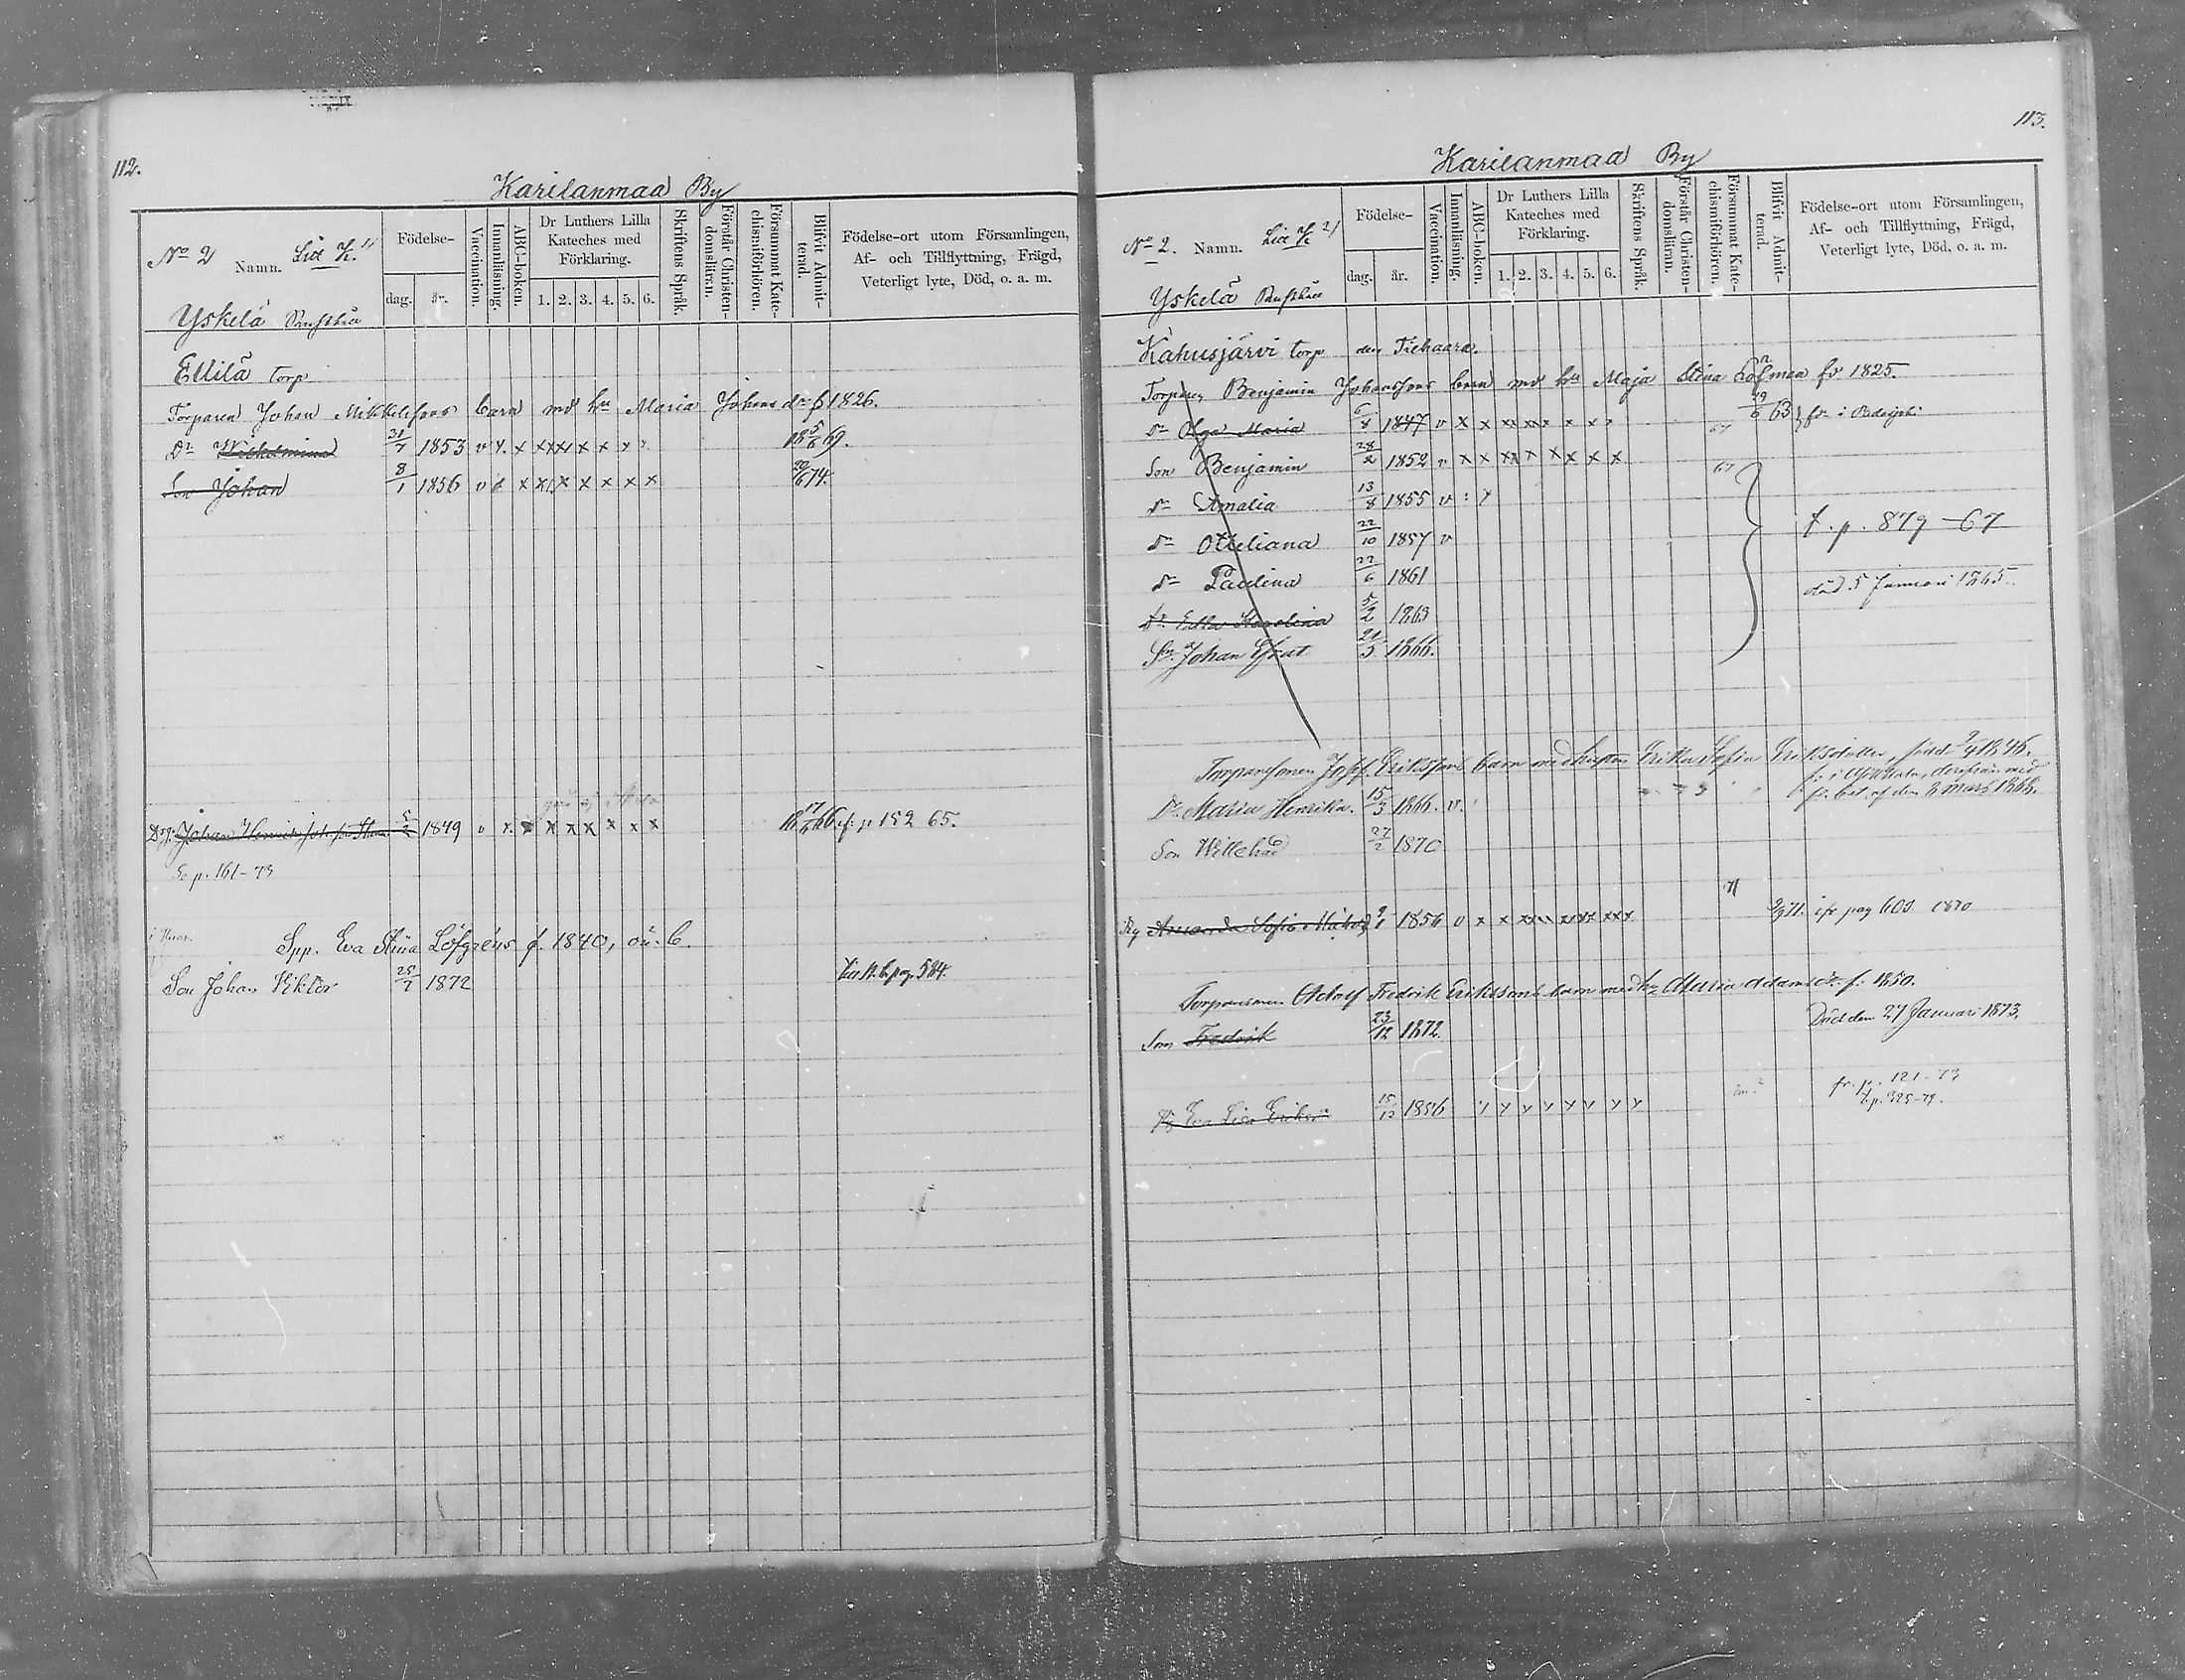 112.
Karilanmaa By
No 2
Namn.
Födelse-
dag.
år.
Vaccination.
Innanläsning.
ABC-boken.
Dr Luthers Lilla
Kateches med
Förklaring.
1. 2. 3. 4. 5. 6.
Skriftens Språk.
Förstår Christen-
domsläran.
Försummat Kate-
chismiförhören.
Blifvit Admit-
terad.
Födelse-ort utom Församlingen,
Af- och Tillflyttning, Frägd,
Veterligt lyte, Död, o. a. m.
Yskelä
Ellilä torp
Torparen Johan Mikkelssons barn med hu Maria Johans dr f 1826.
Dr Wilhelmina 31/7 1853 v x x x x x x x
Son Johan 8/1 1856 v x x x x x x x x 74.
Johan Henrik 1849 v x x x x x x x 66 fr. p 152 65.
Se p. 161-73
Spp. Eva Stina Löfgréns f. 1840, oä. b.
Son Johan Viktor 25/7 1872 584.
113.
Karilanmaa By
No 2. Namn.
Födelse-
dag.
år.
Vaccination.
Innanläsning.
ABC-boken.
Dr Luthers Lilla
Kateches med
Förklaring.
1. 2. 3. 4. 5. 6.
Skriftens Språk.
Förstår Christen-
domsläran.
Försummat Kate-
chismiförhören.
Blifvit Admit-
terad.
Födelse-ort utom Församlingen,
Af- och Tillflyttning, Frägd,
Veterligt lyte, Död, o. a. m.
Yskelä
Kahusjärvi torp
Torparen Benjamin Johanssons barn med hu Maja Stina Löfman fö 1825.
dr Olga Maria 6/8 1847 v x x x x x x x 63
Son Benjamin 28/2 1852 v x x x x x x x x 67
dr Amalia 13/8 1855 v
dr Otteliana 22/10 1857 v
t. p. 879-67
dr Paulina 22/6 1861
död 5 Januari 1865.
dr Edla Karolina 5/2 1863
Sn Johan 21/5 1866.
Torparsonen Josef Erikssons barn med hustru Erika Sofia Eriksdotter, född 1846.
Dr Maria Henrika. 15/3 1866. v.
Son Willehad 27/2 1870
Amanda Sofia 1856 v x x x x x x 71 pag 603 1870
Torparsonen Adolf Fredrik Erikssons barn med hu Maria Adamsdr f. 1850.
Son Fredrik 23/12 1872.
Död den 27 Januari 1873.
Eva Lisa 15/12 1856
fr. p. 121-73
t. p. 325-79.